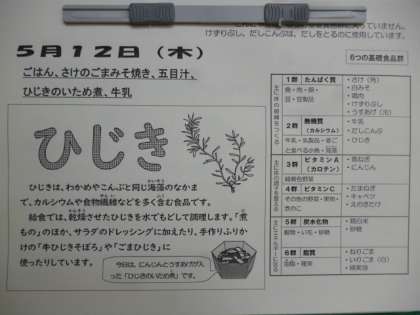 けずりぶし、だしこんぶは、だしをとるのに使用しています。
5月12日（木）
ごはん、さけのごまみそ焼き、五目汁、
ひじきのいため煮、牛乳
ひじき
ひじきは、わかめやこんぶと同じ海藻のなかま
で、カルシウムや食物繊維などを多く含む食品です。
給食では、乾燥させたひじきを水でもどして調理します。「煮
もの」のほか、サラダのドレッシングに加えたり、手作りふりか
けの「牛ひじきそぼろ」や「ごまひじき」に
使ったりしています。
今日は、にんじんとうすあげが入
った「ひじきのいため煮」です。
6つの基礎食品群
1群 たんぱく質
魚・肉・卵・
豆・豆製品
・さけ（角）
・白みそ
・鶏肉
・けずりぶし
・うすあげ（冷）
2群 無機質
（カルシウム）
牛乳・乳製品・骨ごと食べる小魚・海藻
・牛乳
・だしこんぶ
・ひじき
3群 ビタミンA
（カロテン）
緑黄色野菜
・青ねぎ
・にんじん
4群 ビタミンC
その他の野菜・果物・きのこ
・たまねぎ
・キャベツ
・えのきだけ
5群 炭水化物
穀物・いも・砂糖
・精白米
・砂糖
6群 脂質
油脂・種実
・ねりごま
・いりごま（白）
・綿実油